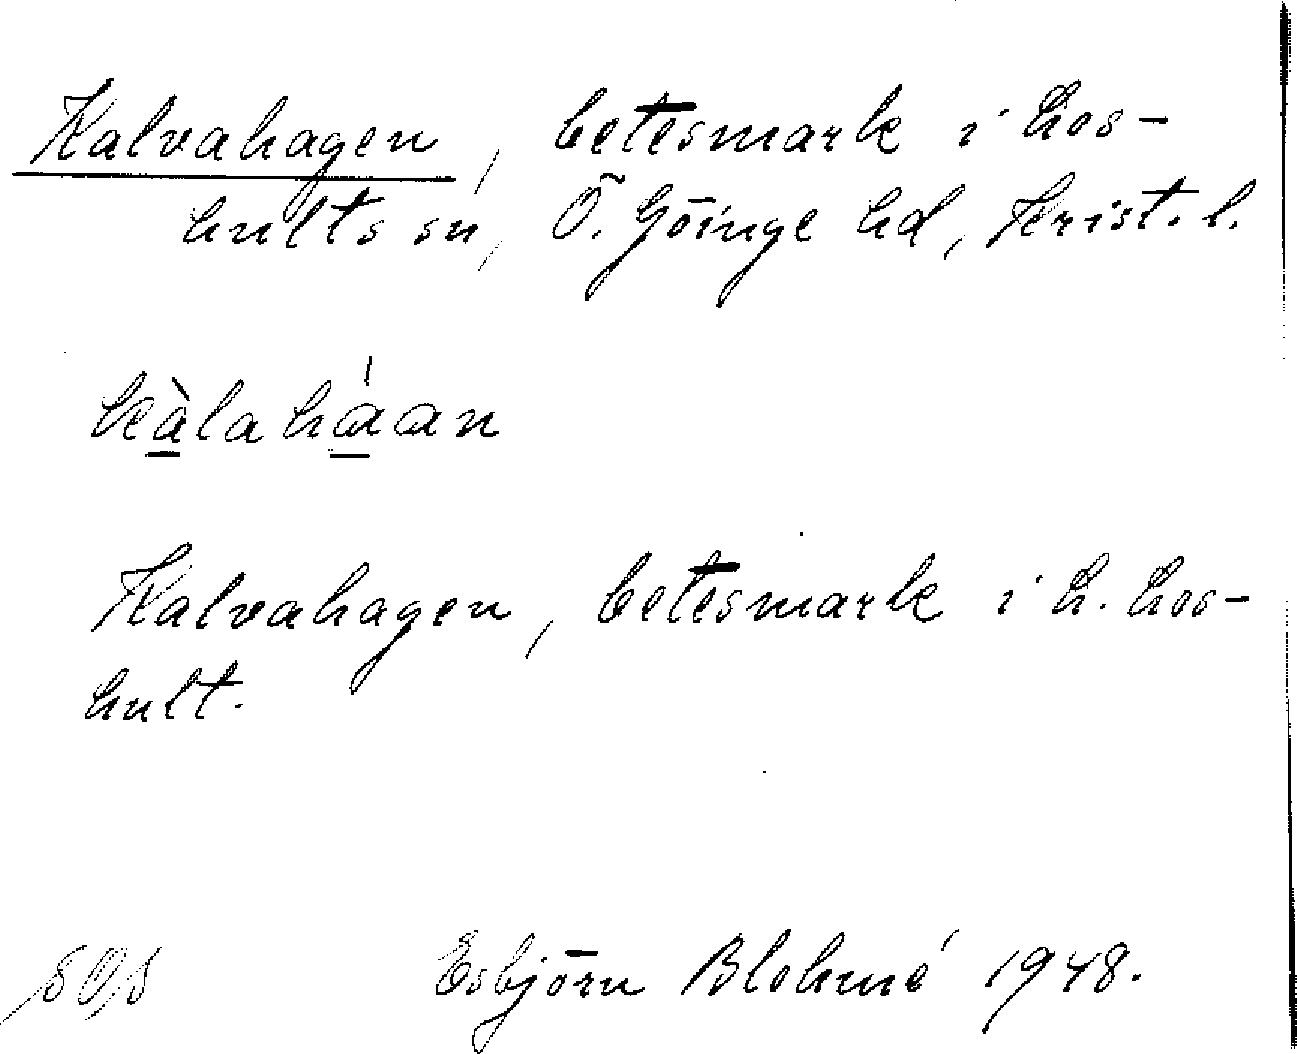 Kalvahagen, betesmark i Hos-
hults sn, Ö. Göinge hd, Krist. l.
kàlahàan
Kalvahagen, betesmark i H. Hos-
hult.
Esbjörn Blohmé 1948.